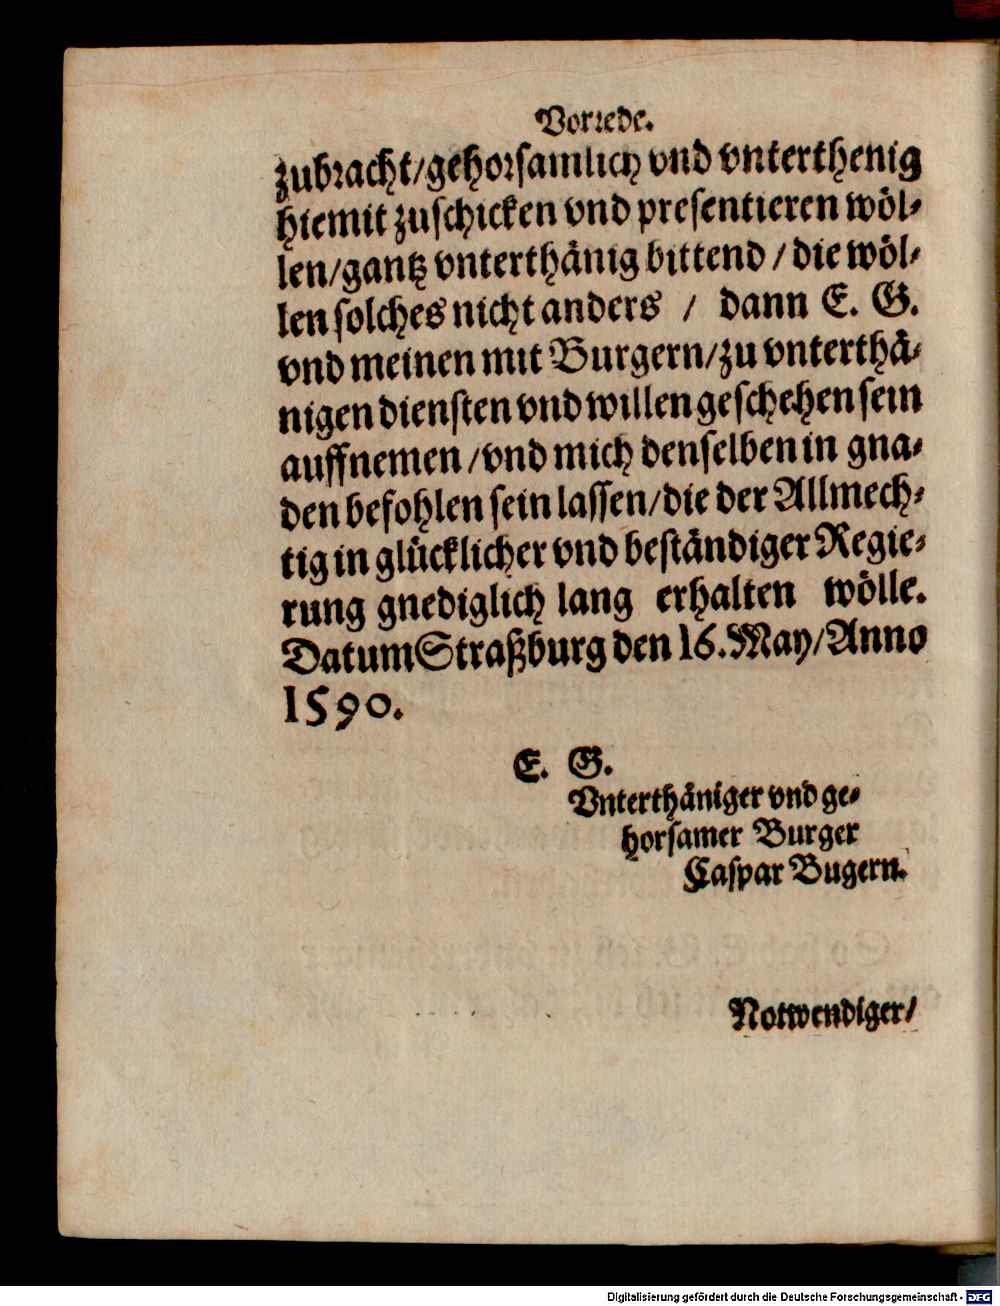 Vorrede.
zubracht/gehorsamlich vnd vnterthenig
hiemit zuschicken vnd presentieren wöl⸗
len/gantz vnterthänig bittend / die wöl⸗
len solches nicht anders / dann E. G.
vnd meinen mit Burgern/zu vnterthä⸗
nigen diensten vnd willen geschehen sein
auffnemen /vnd mich denselben in gna⸗
den befohlen sein lassen/die der Allmech⸗
tig in glücklicher vnd beständiger Regie⸗
rung gnediglich lang erhalten wölle.
Datum Straßburg den 16. May/Anno
1590.
E. G.
Vnterthäniger vnd ge⸗
horsamer Burger
Caspar Bugern.
Notwendiger/
Digitalisierung gefördert durch die Deutsche Forschungsgemeinschaft - DFG